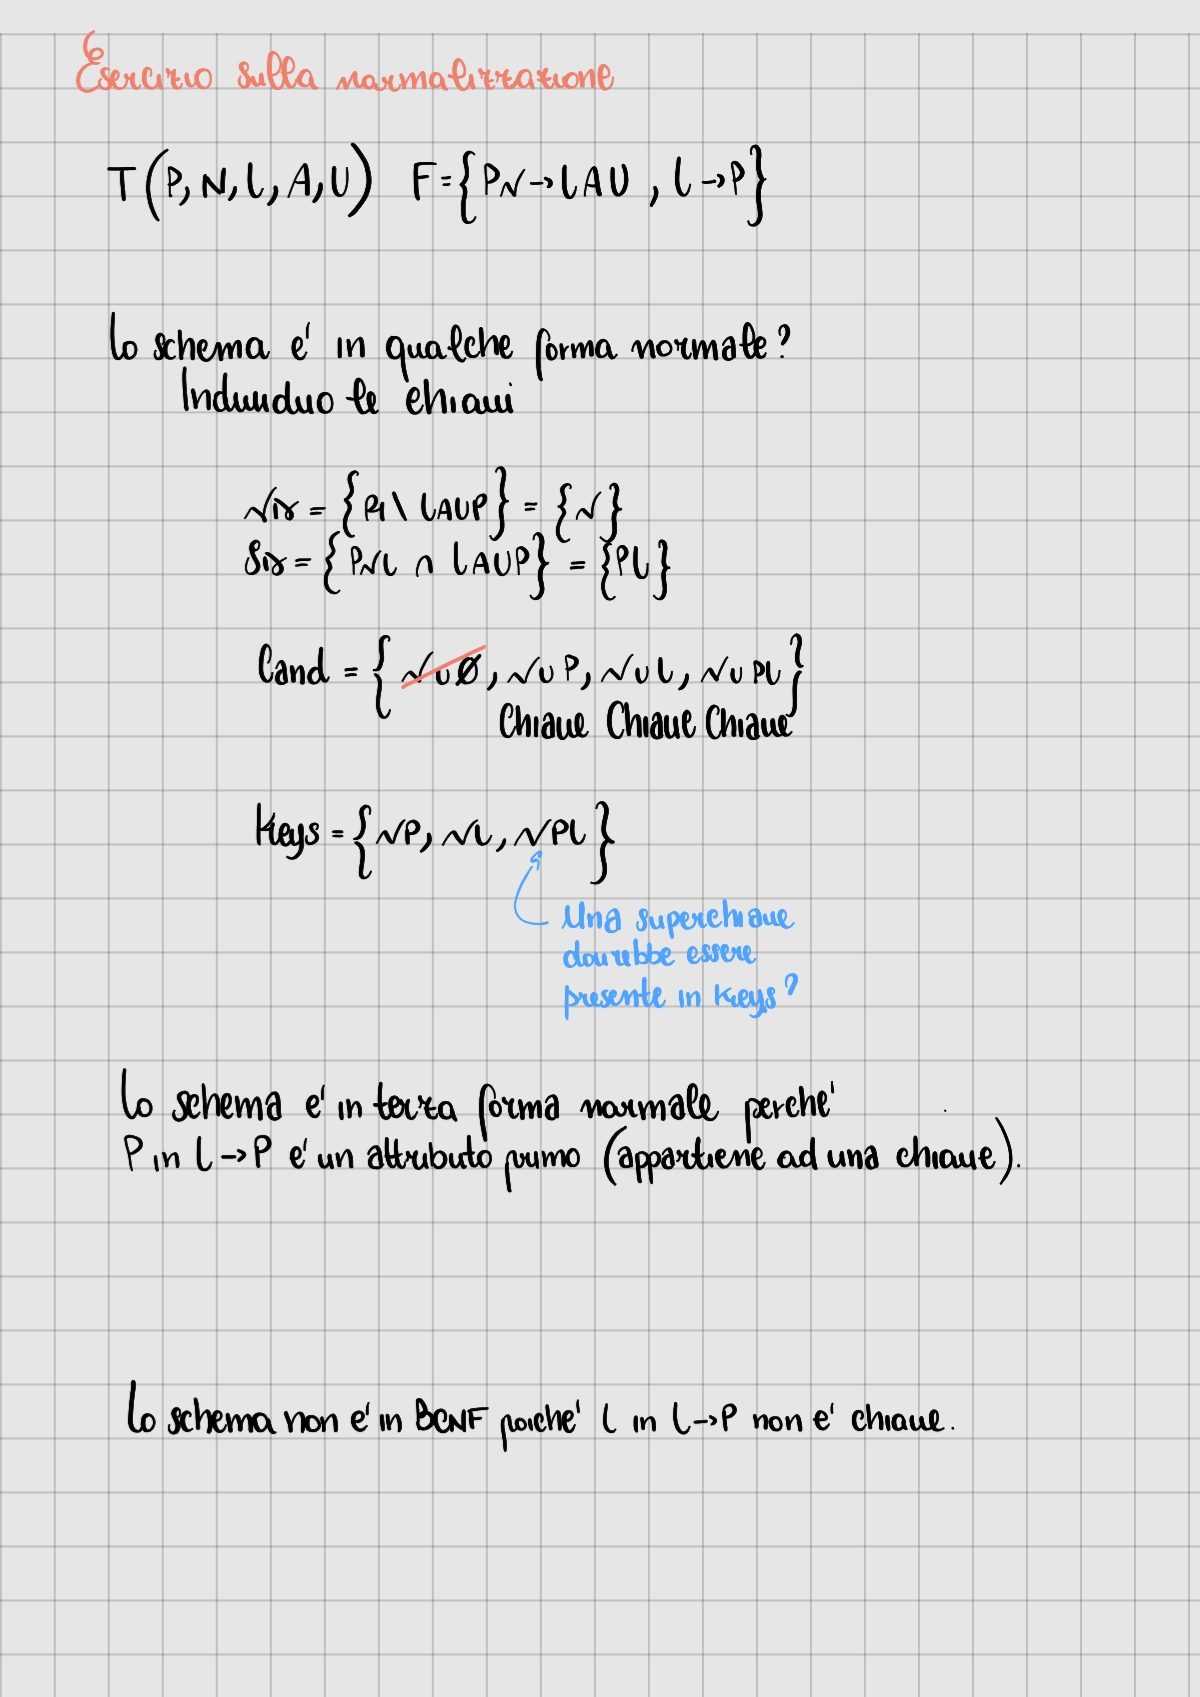 Esercizio sulla normalizzazione
T(P,N,L,A,U) F={PN→LAU, L→P}
Lo schema e' in qualche forma normale?
Individuo le chiavi
= {N}
= {PNL ∩ LAUP} = {PL}
Cand = {N∪Ø, N∪P, N∪L, N∪PL}
Chiave Chiave Chiave
Keys = {NP, NL, NPL}
Una superchiave
dovrebbe essere
presente in Keys?
Lo schema e' in terza forma normale perche'
P in L→P e' un attributo primo (appartiene ad una chiave).
Lo schema non e' in BCNF poiche' L in L→P non e' chiave.